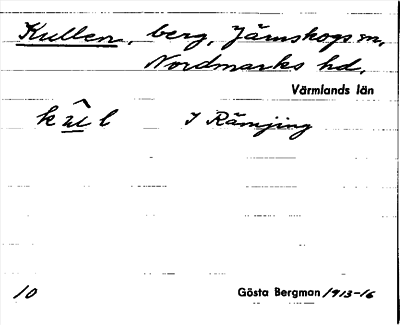 Kullen, berg, Järnskogs sn,
Nordmarks hd,
Värmlands län
kûl I Rämjing
10 Gösta Bergman 1913-16